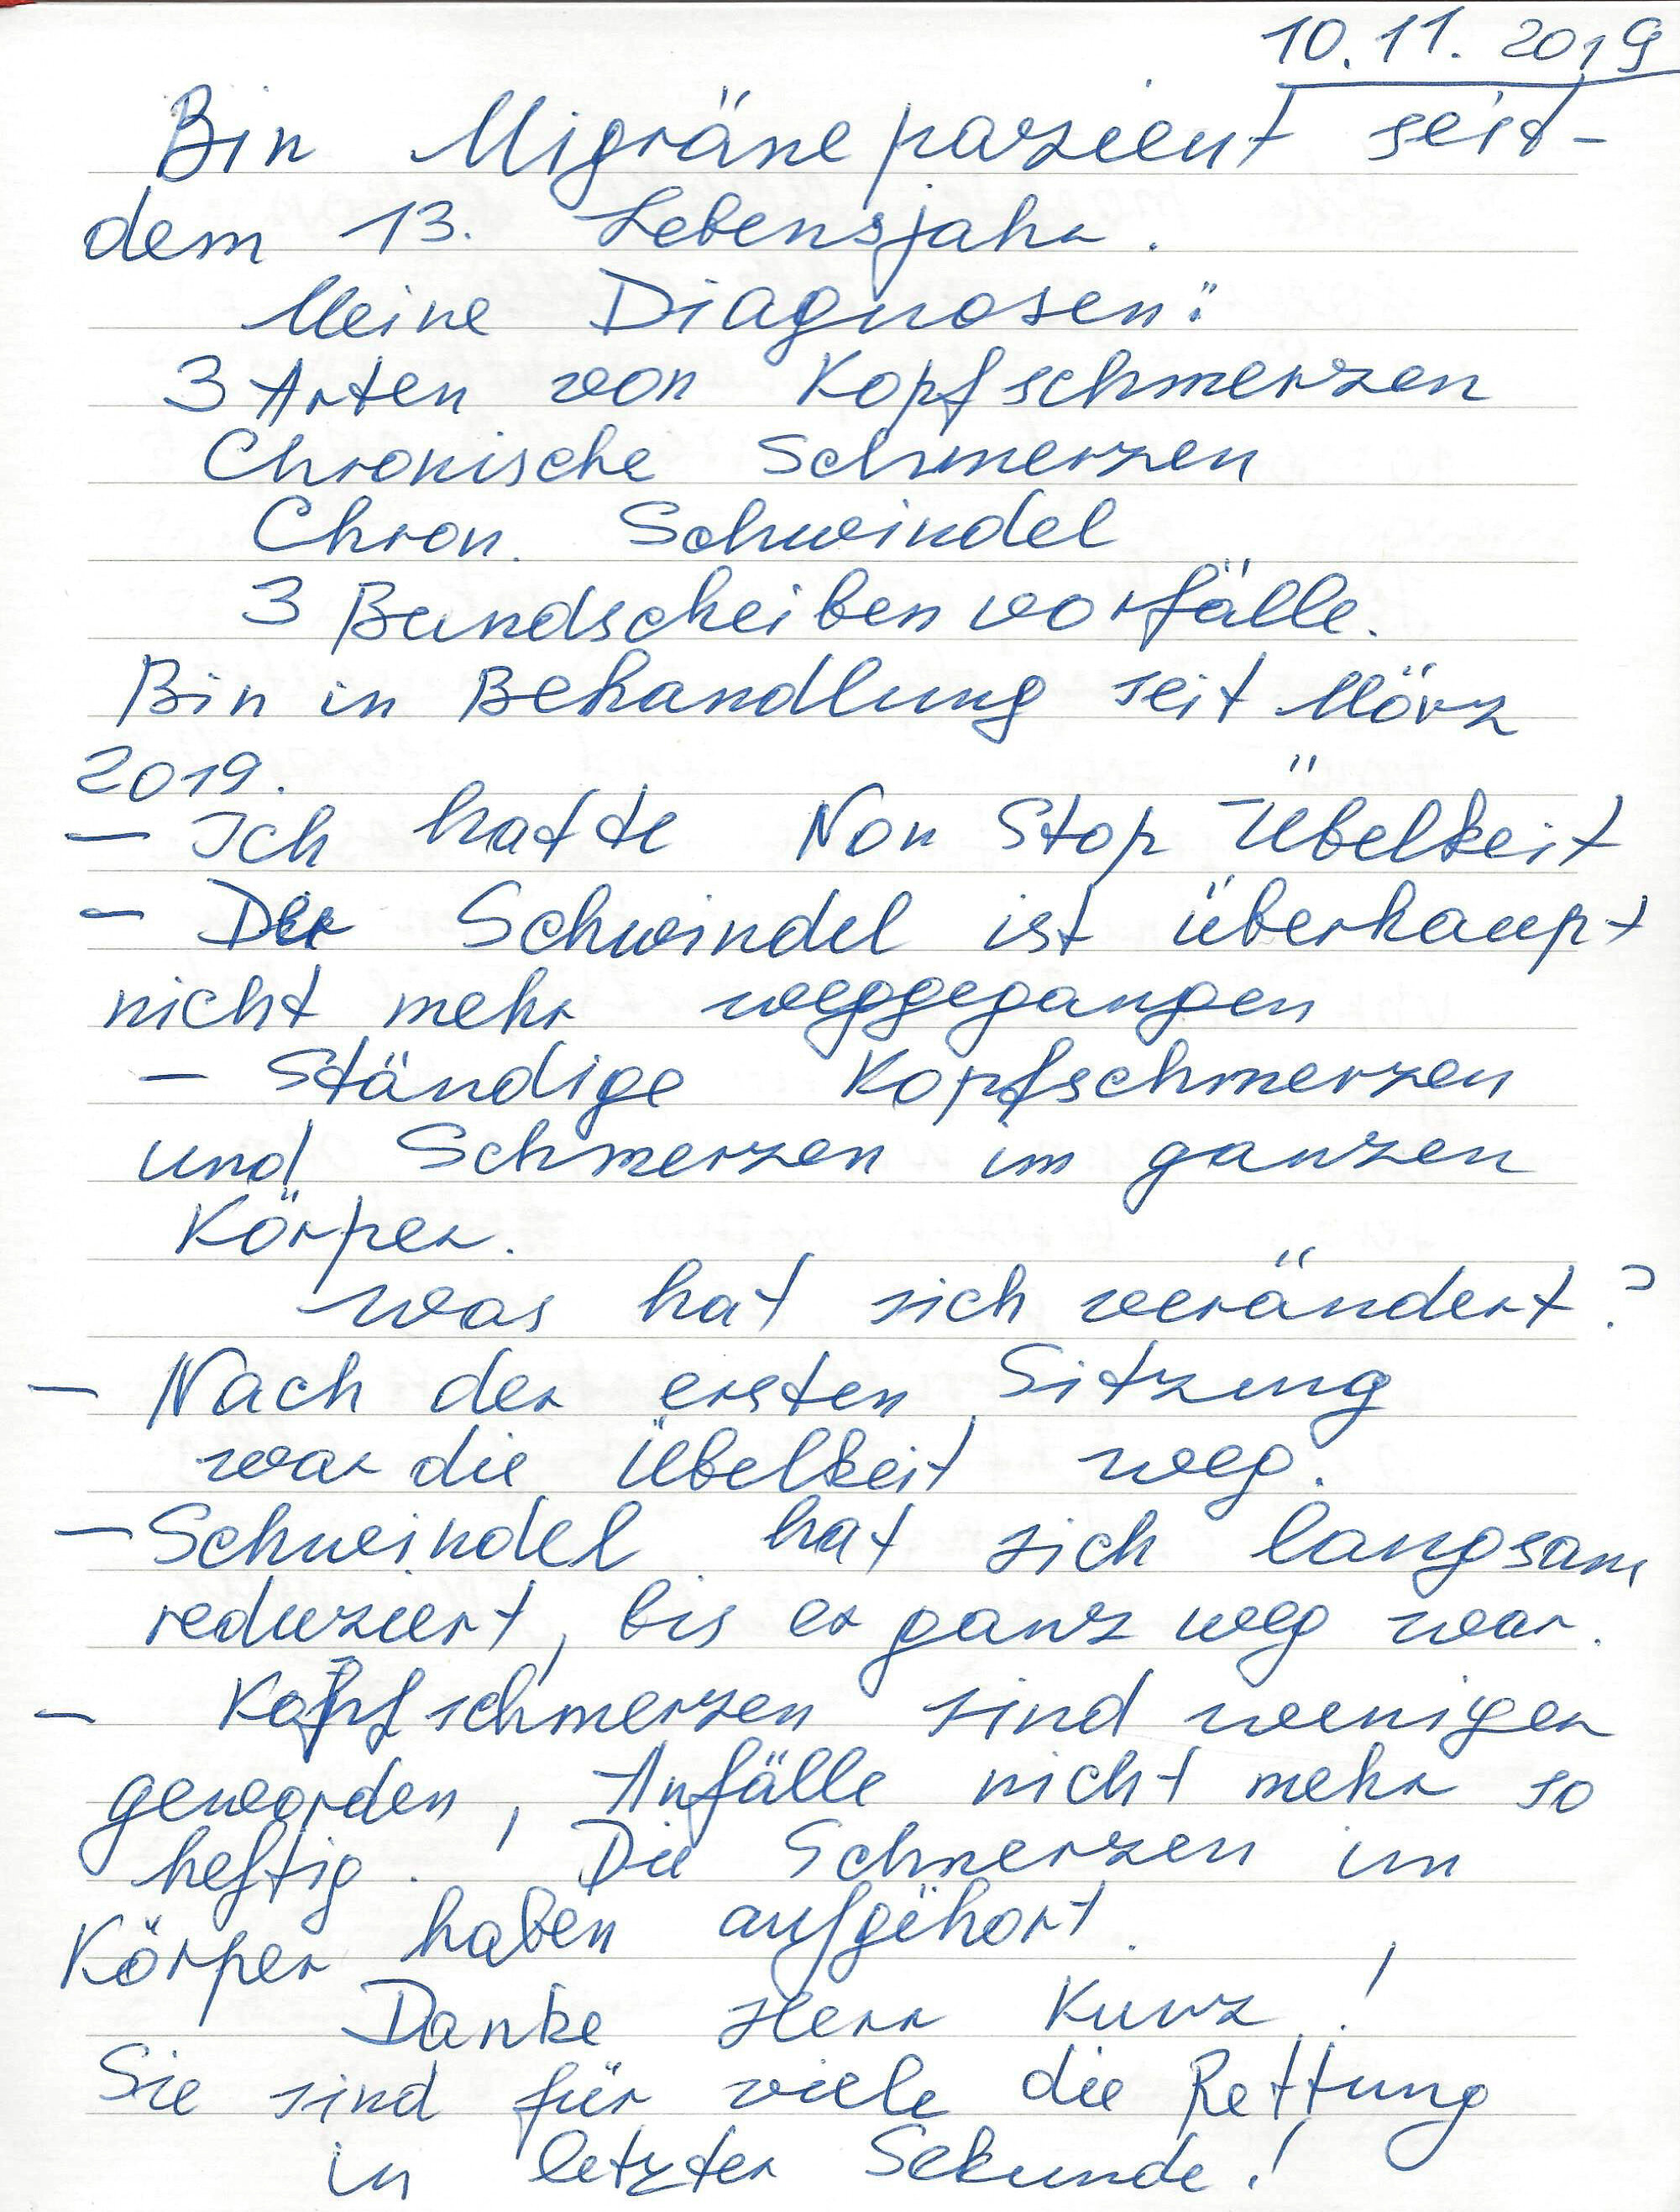 10.11.2019
Bin Migränepazient seit-
dem 13. Lebensjahr.
Meine Diagnosen:
3 Arten von Kopfschmerzen
Chronische Schmerzen
Chron. Schwindel
3 Bandscheibenvorfälle.
Bin in Behandlung seit März
2019.
- Ich hatte Non Stop Übelkeit
- Der Schwindel ist überhaupt
nicht mehr weggegangen
- Ständige Kopfschmerzen
und Schmerzen im ganzen
Körper.
Was hat sich verändert?
- Nach der ersten Sitzung
war die Übelkeit weg.
- Schwindel hat sich langsam
reduziert, bis er ganz weg war.
- Kopfschmerzen sind weniger
geworden, Anfälle nicht mehr so
heftig. Die Schmerzen im
Körper haben aufgehört.
Danke Herr Kurz!
Sie sind für viele die Rettung
in letzter Sekunde!